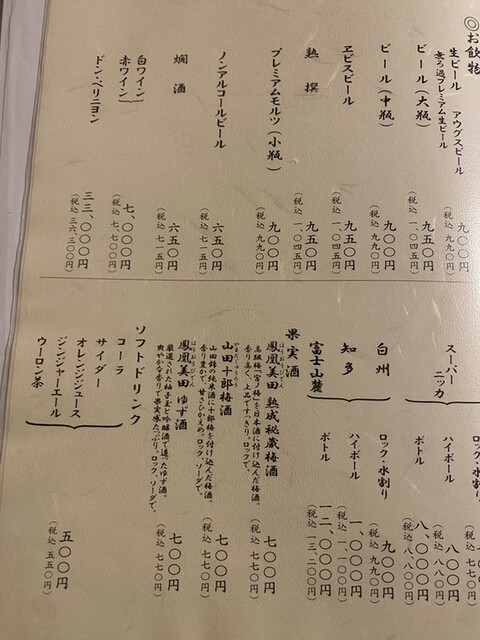 ◎お飲物
生ビール アウグスビール
無ろ過プレミアム生ビール
九〇〇円
(税込 九九〇円)
ビール(大瓶)
九五〇円
(税込 一、〇四五円)
ビール(中瓶)
九〇〇円
(税込 九九〇円)
ヱビスビール
九五〇円
(税込 一、〇四五円)
熟撰
九五〇円
(税込 一、〇四五円)
プレミアムモルツ(小瓶)
九〇〇円
(税込 九九〇円)
ノンアルコールビール
六五〇円
(税込 七一五円)
燗酒
六五〇円
(税込 七一五円)
白ワイン
赤ワイン
七、〇〇〇円
(税込 七、七〇〇円)
ドン・ペリニヨン
三三、〇〇〇円
(税込 三六、三〇〇円)
ロック・水割り
七〇〇円
(税込 七七〇円)
スーパー
ニッカ
ハイボール
八〇〇円
(税込 八八〇円)
ボトル
八、〇〇〇円
(税込 八、八〇〇円)
白州
知多
富士山麓
ロック・水割り
九〇〇円
(税込 九九〇円)
ハイボール
一、〇〇〇円
(税込 一、一〇〇円)
ボトル
一二、〇〇〇円
(税込 一三、二〇〇円)
果実酒
ほうおうびでん
鳳凰美田 熟成秘蔵梅酒
高級梅「宮ノ梅」を日本酒に付け込んだ梅酒。
香り高く、上品ですっきり。ロックで。
七〇〇円
(税込 七七〇円)
やまだじゅうろう
山田十郎梅酒
山田錦の純米酒に十郎梅を付け込んだ梅酒。
香り豊かで、甘さひかえめ。ロック、ソーダで。
七〇〇円
(税込 七七〇円)
ほうおうびでん
鳳凰美田 ゆず酒
厳選された柚子玉と吟醸酒で造ったゆず酒。
爽やかな香りで果実感たっぷり。ロック、ソーダで。
七〇〇円
(税込 七七〇円)
ソフトドリンク
コーラ
サイダー
オレンジジュース
ジンジャーエール
ウーロン茶
五〇〇円
(税込 五五〇円)